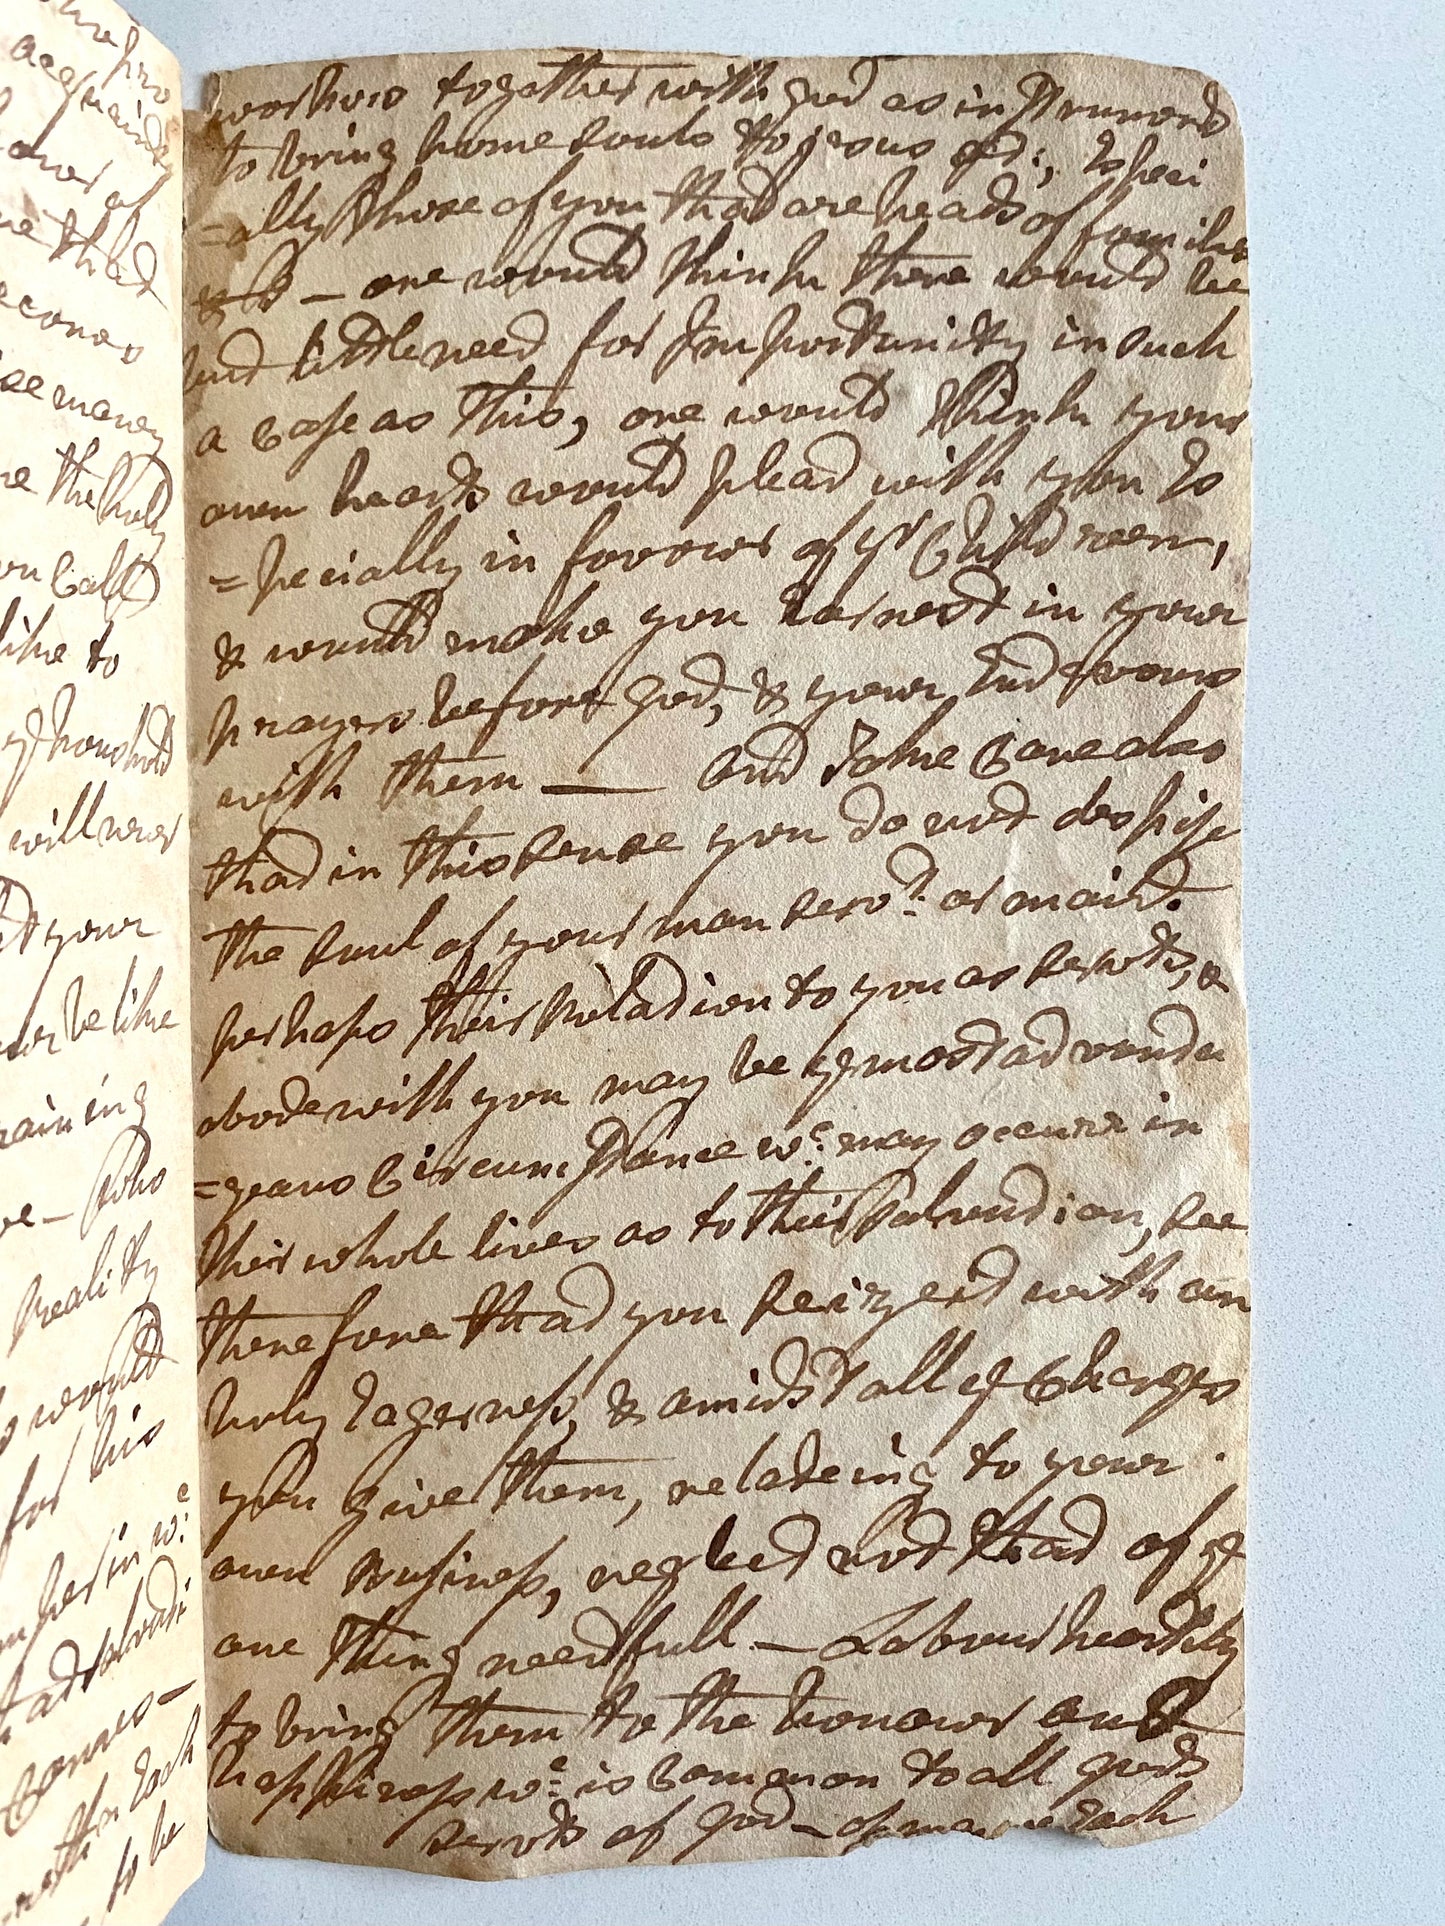 workers together with god as instruments
to bring home souls to jesus &c:, Especi
=ally those of you that are heads of families
& P — one would think there would be
but little need for Importunity in such
a case as this, one would think your
own hearts would plead with you es
=pecially in favour of yr Children,
& would make you Earnest in your
prayers before god, & your Endevours
with them — and take Care also
that in this sense you do not despise
the soul of your man servt: or maid.
perhaps their Relation to you as servts, &
abode with you may be ye most advanta
=geous Circumstance wc: may occurr in
their whole lives as to their Salvation, see
therefore that you seize it with an
holy Eagerness, & amidst all ye Charges
you give them, relateing to your
own Business, neglect not that of ye
one thing needfull — Labour heartily
to bring them to the honour and
happiness wc: is Common to all gods
servts of god — of
each
aine
ours of
ne that
econes
many
re the holy
ou Call
like to
ye houshold
will never
your
be like
aining
Who
Reality
would
for his
in wc:
Comes —
each
to be